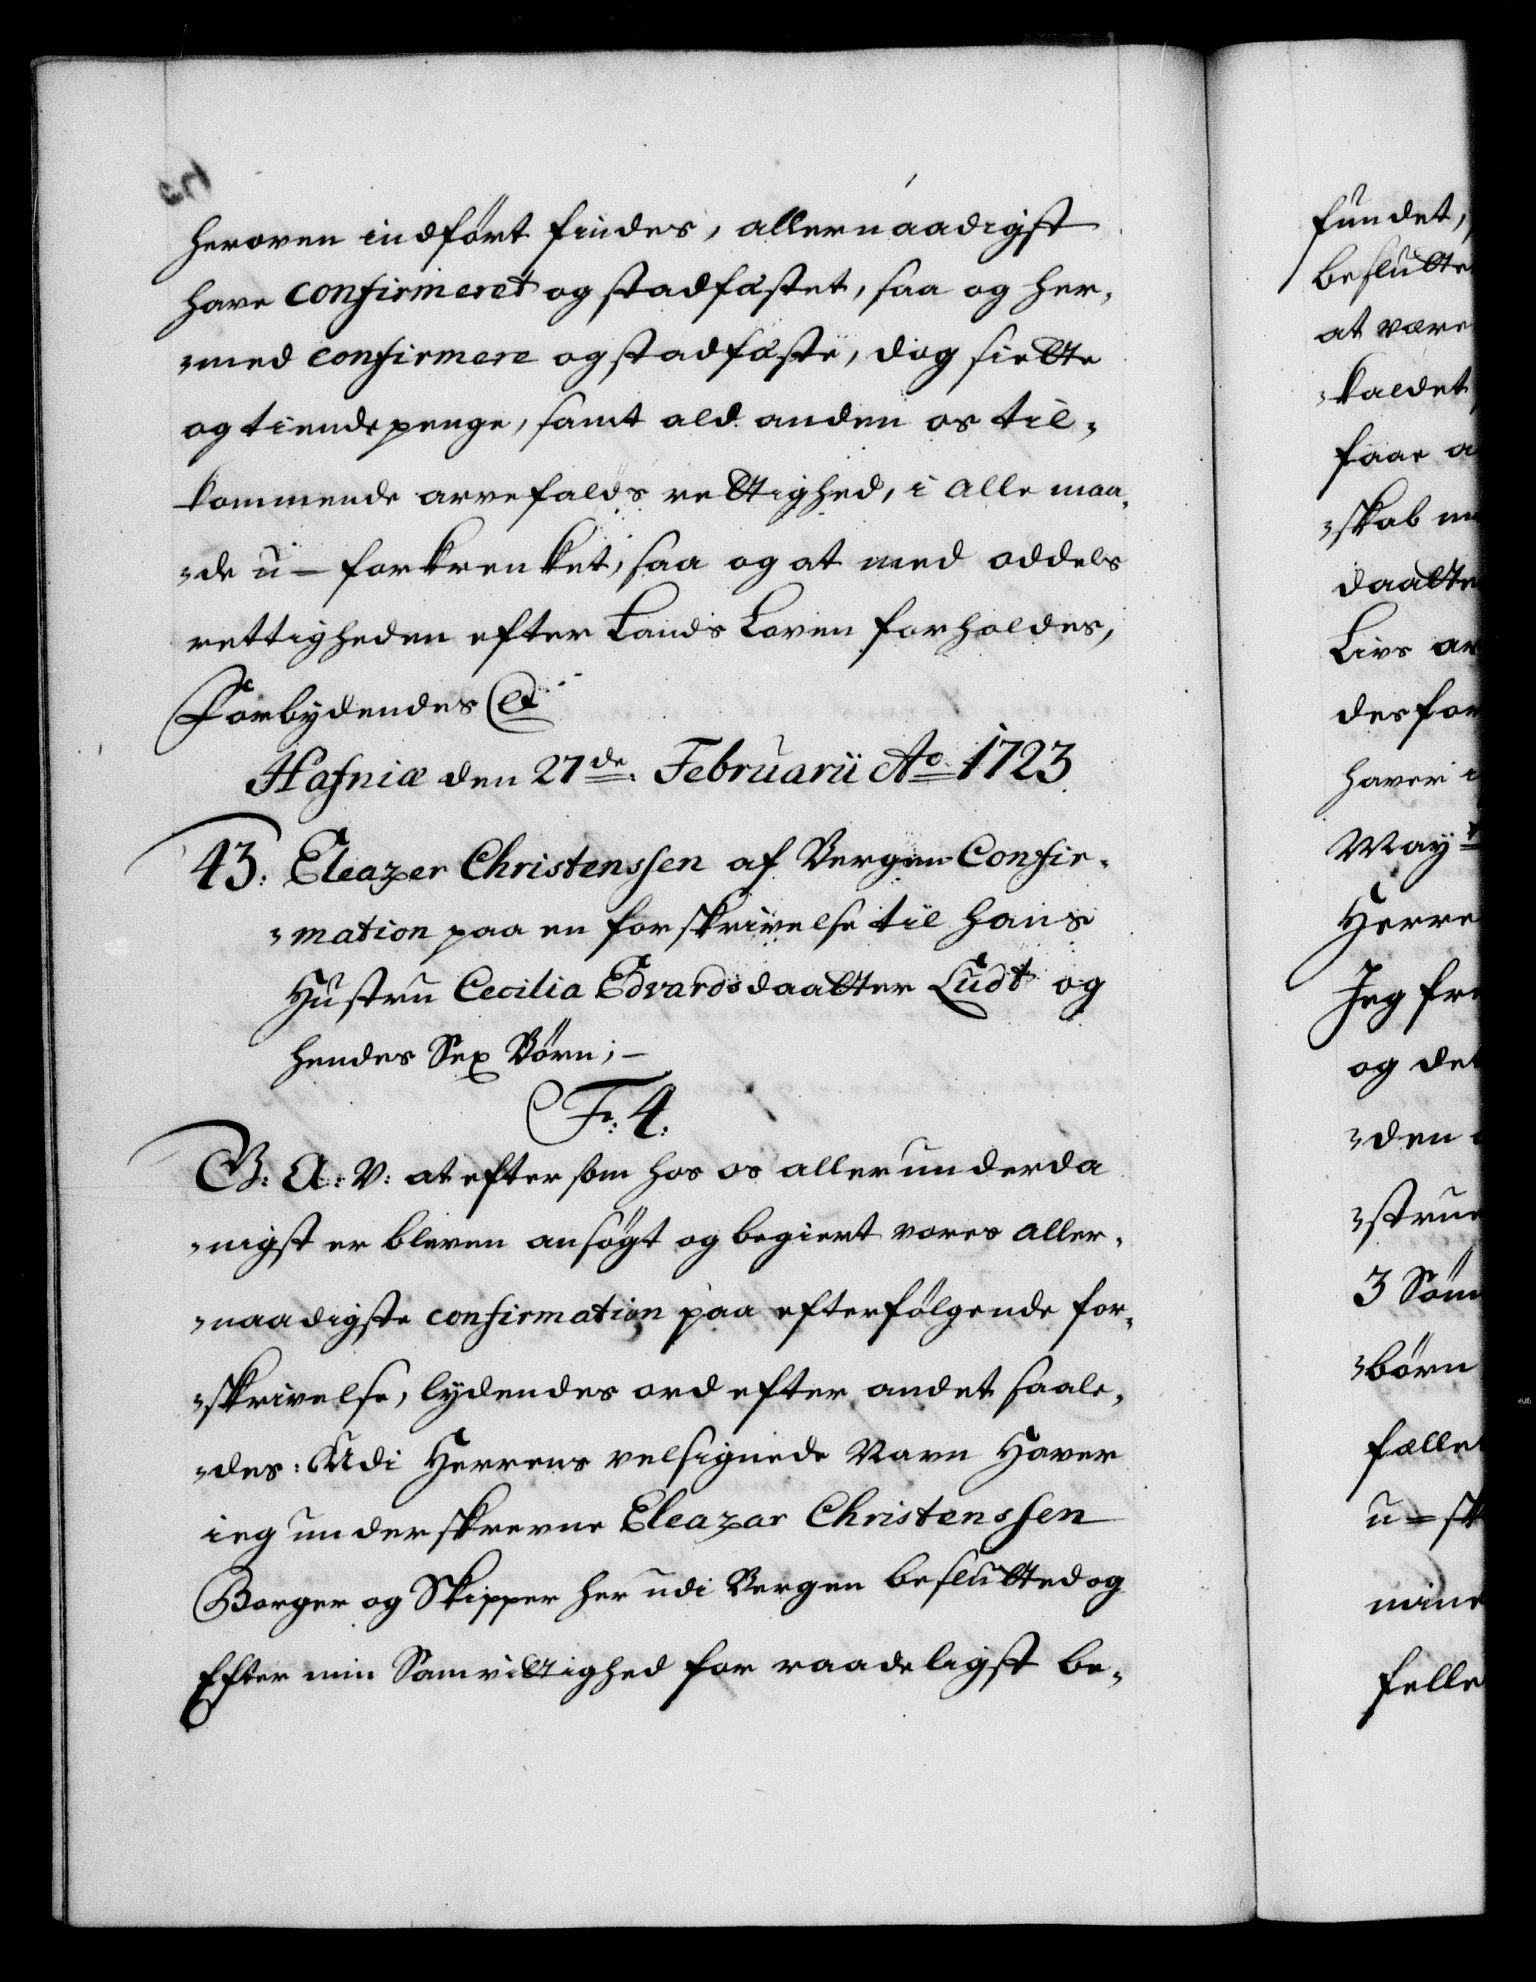 heroven indført findes, allernaadigst
have confirmeret og stadfæstet, saa og her„
„med confirmere og stadfæste, dog siette
og tiende penge, samt ald anden os til„
kommende arvefalds rettighed, i alle maa„
„de u-forkrenket, saa og at med oddels
rettigheden efter Lands Loven forholdes,
Forbydendes &
Hafniæ den 27de. Februarii Ao 1723
43: Eleazer Christenssen af Bergen Confir„
„mation paa en forskrivelse til hans
Hustru Cecilia Edvardsdaatter Ludt og
hendes Sex Börn;-
F: 4:
G: A: V: at eftersom hos os allerunderda
„nigst er bleven ansögt og begiert vores aller„
„naadigste confirmation paa efterfölgende for„
„skrivelse, lydendes ord efter andet saale„
„des: Udi Herrens velsignede Navn Haver
ieg underskrevne Eleazar Christenssen
Borger og Skipper her udi Bergen beslutted og
Efter min Samvittighed for raadeligst be„
fundet,
beslutte
at være
„kaldet
faar
„skab
daatter
Livs
des for
haver
May
Herre
Jeg
og det
„den
„strue
3 Sönn
„börn
fælle
u-sk
mine
felle